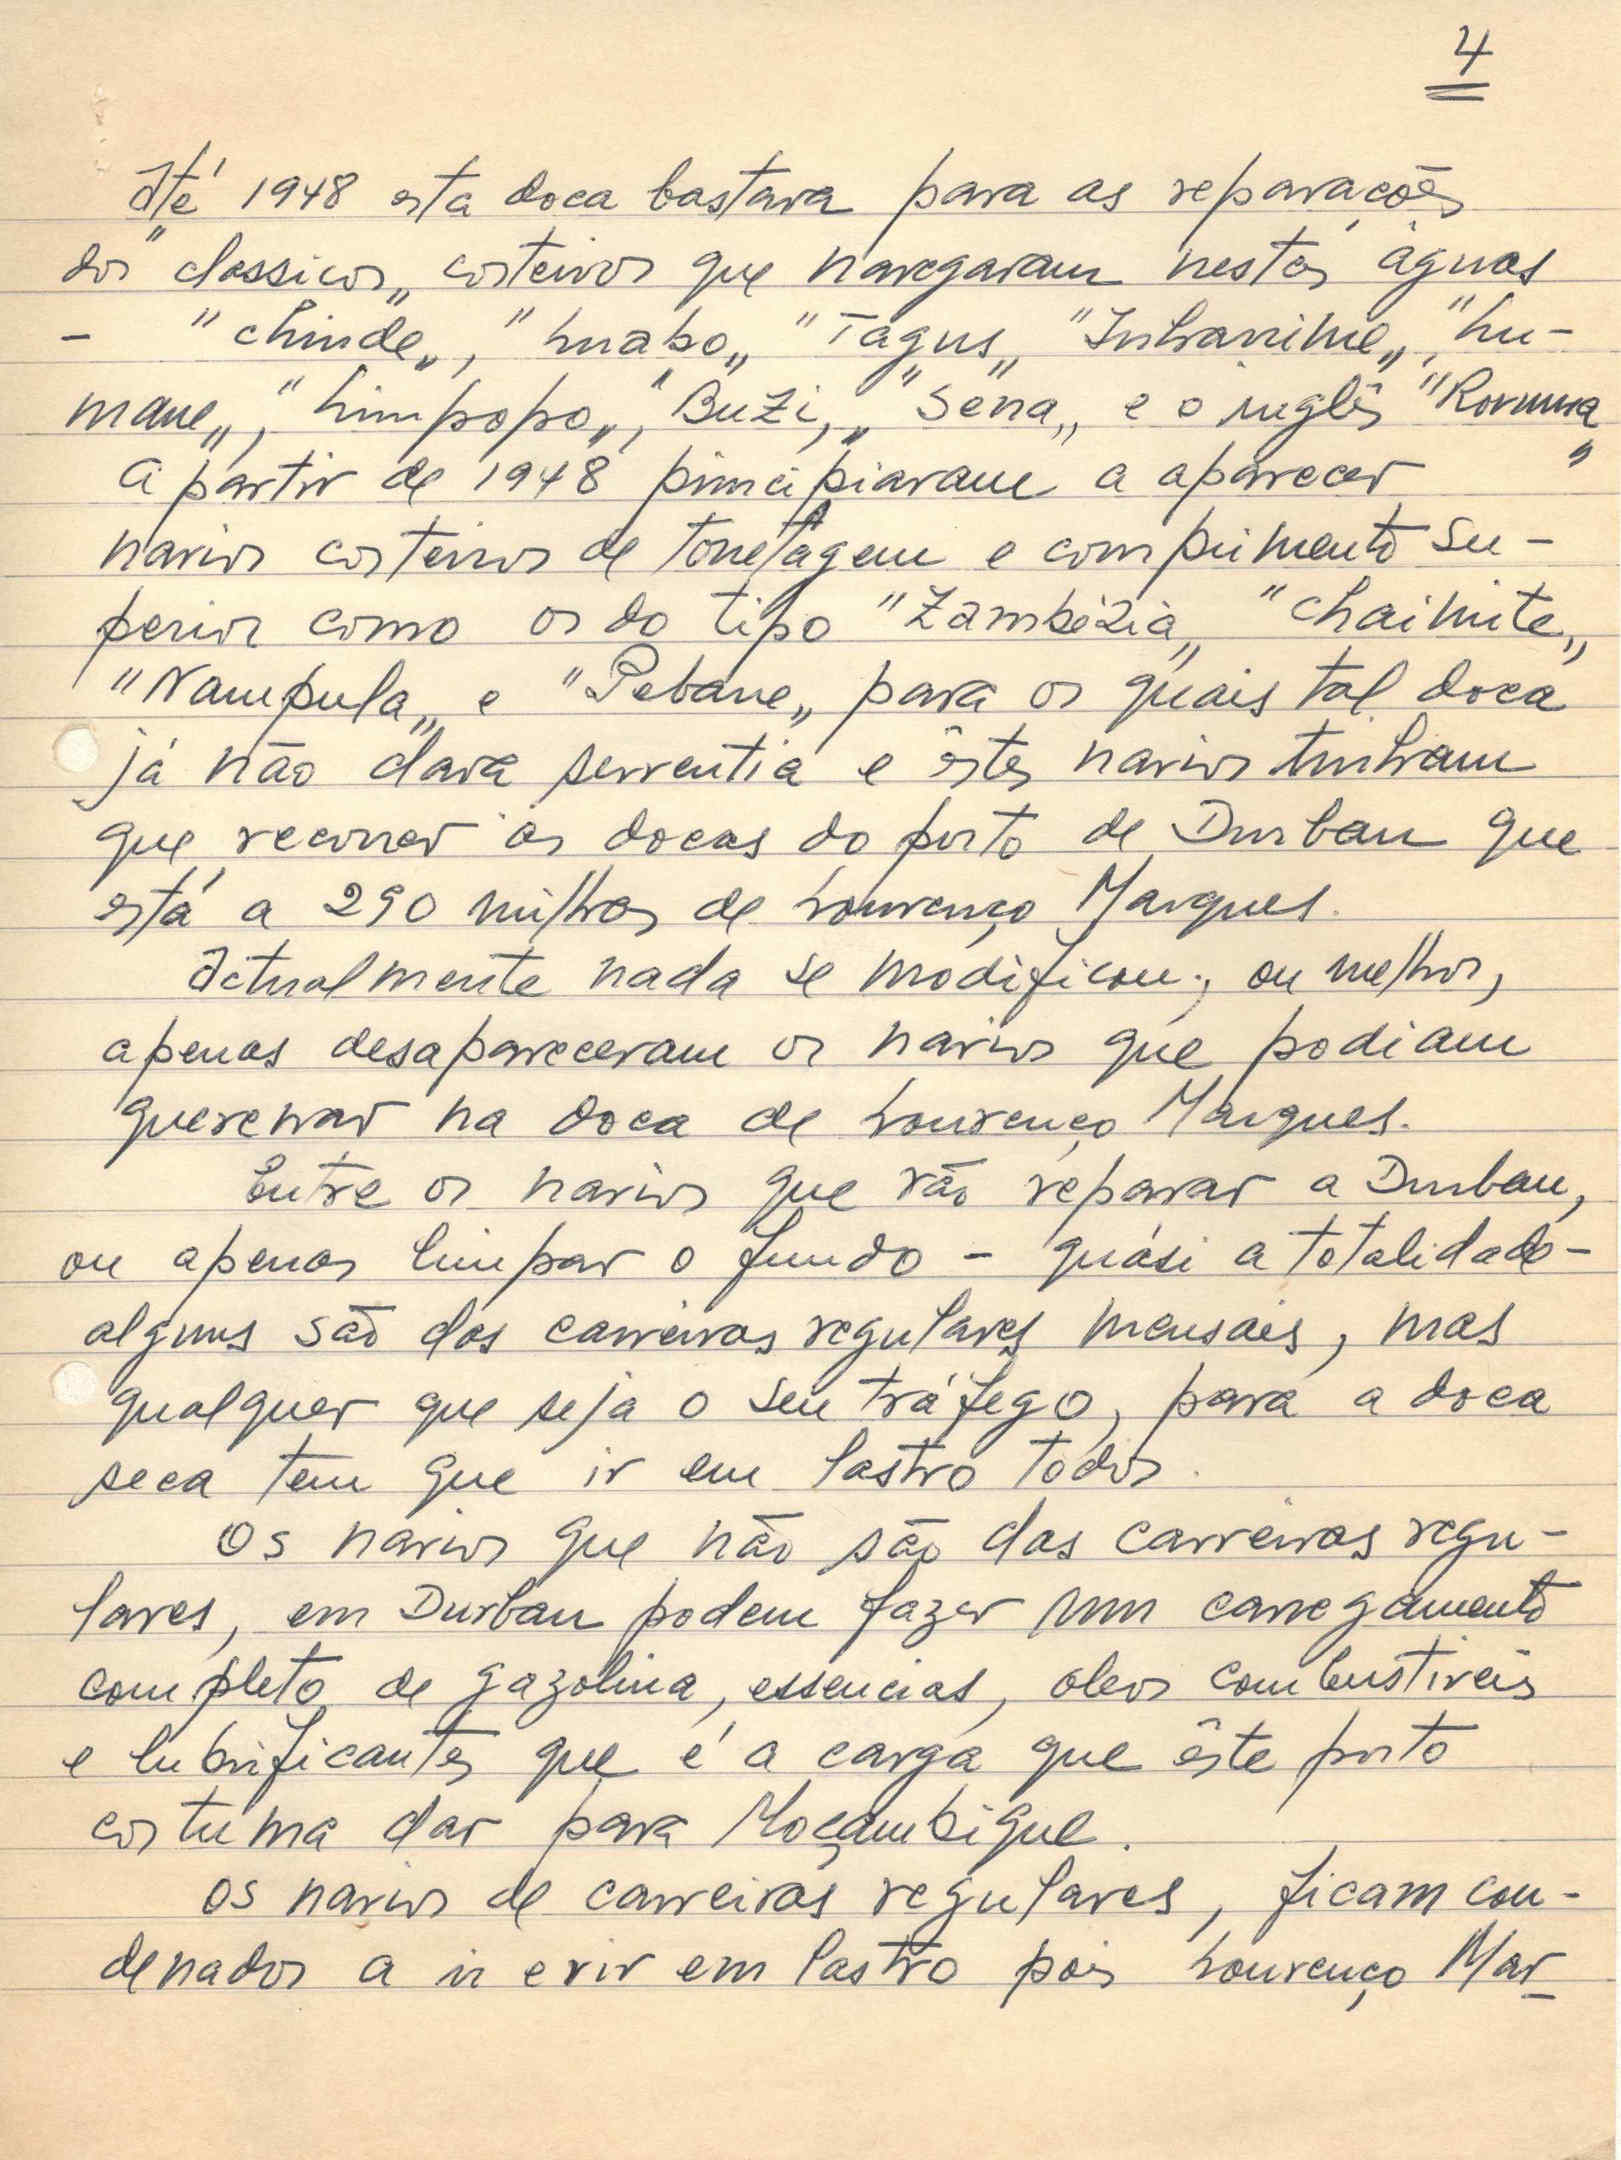 4
Até 1948 esta doca bastava para as reparações
dos "classicos" costeiros que navegaram nestas águas
- "Chinde", "Luabo" "Tagus" "Inharrime", "Lu-
mane", "Limpopo", "Buzi", "Sena" e o inglês "Rovuma"
A partir de 1948 principiaram a aparecer
navios costeiros de tonetagem e comprimento su-
perior como os do tipo "Zambézia" "Chaimite"
"Nampula" e "Pebane" para os quais tal doca
já não dava serventia e êstes navios tinham
que recorrer ás docas do porto de Durban que
está a 290 milhas de Lourenço Marques.
Actualmente nada se modificou; ou melhor,
apenas desapareceram os navios que podiam
querenar na doca de Lourenço Marques.
Entre os navios que vão reparar a Durban,
ou apenas limpar o fundo - quási a totalidade -
alguns são das carreiras regulares mensais, mas
qualquer que seja o seu tráfego, para a doca
seca tem que ir em lastro todos.
Os navios que não são das carreiras regu-
lares, em Durban podem fazer um carregamento
completo de gazolina, essencias, oleos combustiveis
e lubrificantes que é a carga que êste porto
costuma dar para Moçambique.
Os navios de carreiras regulares, ficam con-
denados a ir e vir em lastro pois Lourenço Mar-